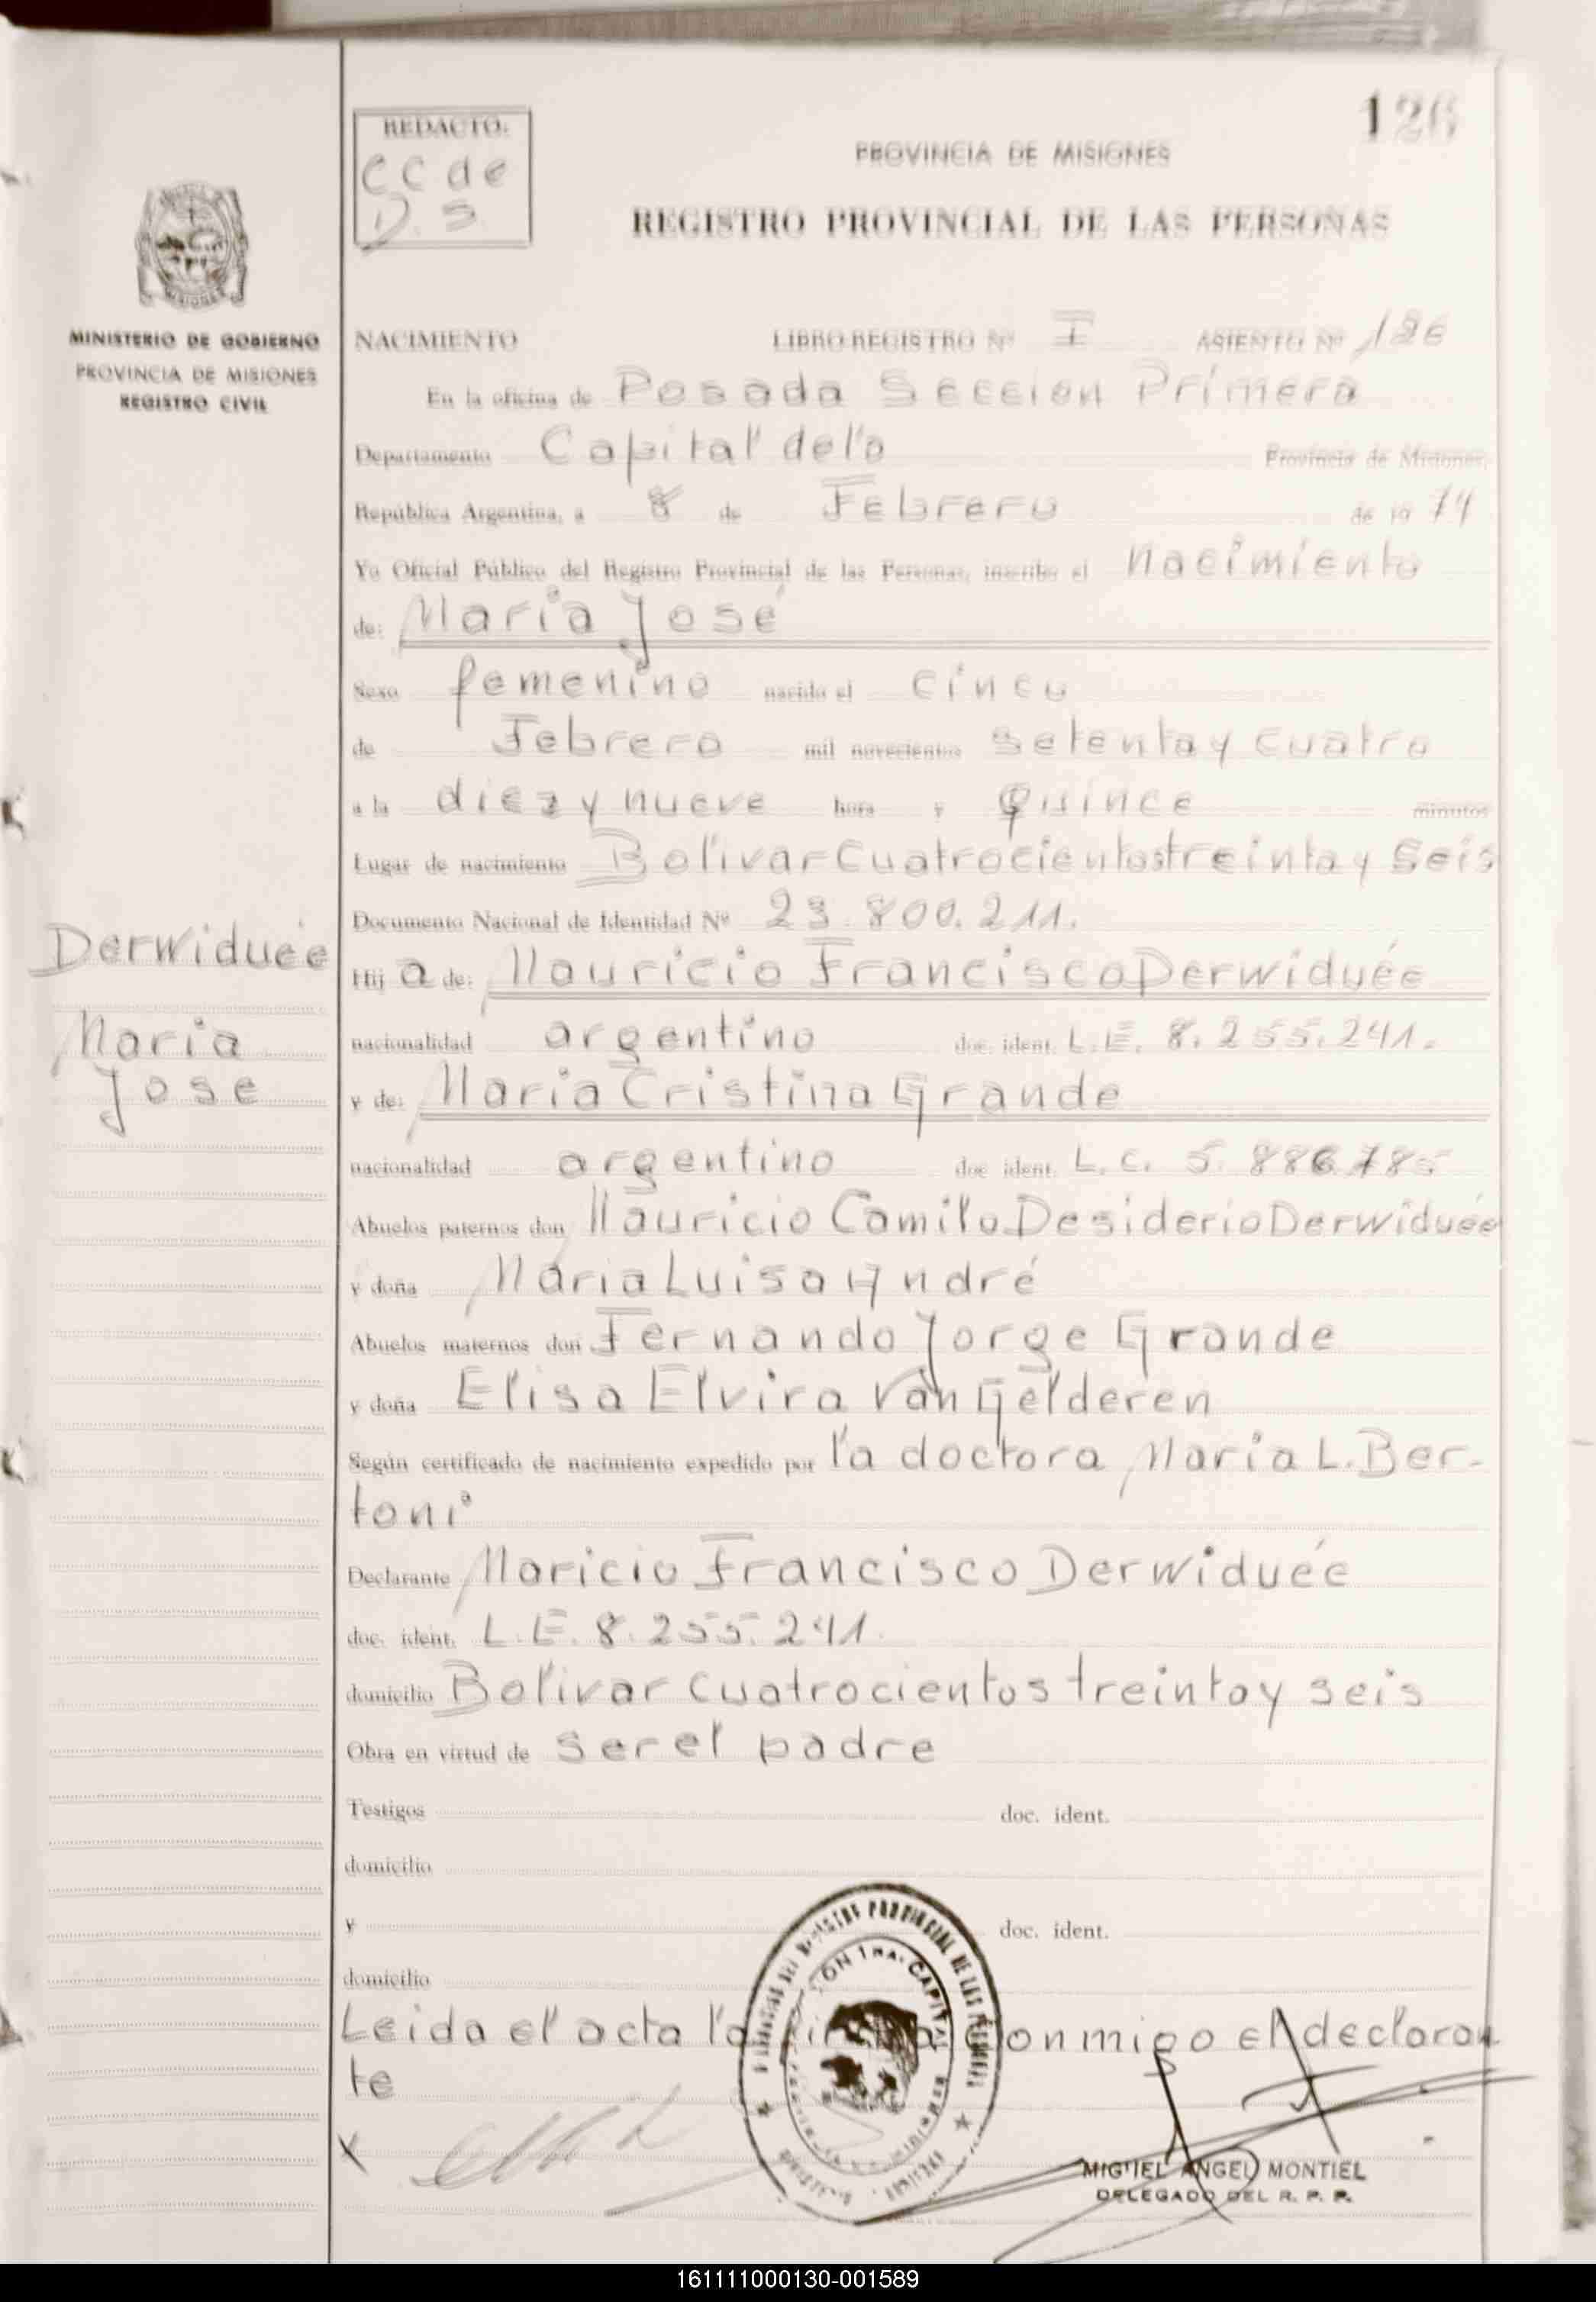 126
REDACTO:
CC de
D. S
PROVINCIA DE MISIONES
REGISTRO PROVINCIAL DE LAS PERSONAS
MISIONES
MINISTERIO DE GOBIERNO
PROVINCIA DE MISIONES
REGISTRO CIVIL
NACIMIENTO LIBRO REGISTRO Nº I ASIENTO Nº 126
En la oficina de Posada Seccion Primera
Departamento Capital de la Provincia de Misiones,
República Argentina, a 8 de Febrero de 19 74
Yo Oficial Público del Registro Provincial de las Personas, inscribo el Nacimiento
de: Maria José
Sexo femenino nacido el cinco
de Febrero mil novecientos setenta y cuatro
a la diez y nueve hora y Quince minutos
Lugar de nacimiento Bolivar Cuatrocientos treinta y seis
Documento Nacional de Identidad Nº 23.800.211.
Derwiduée
Maria
Jose
Hij a de: Mauricio Francisco Derwiduée
nacionalidad argentino doc. ident. L.E. 8.255.241.
y de: Maria Cristina Grande
nacionalidad argentino doc ident. L.C. 5.886.785
Abuelos paternos don Mauricio Camilo Desiderio Derwiduée
y doña Maria Luisa André
Abuelos maternos don Fernando Jorge Grande
y doña Elisa Elvira Van Gelderen
Según certificado de nacimiento expedido por la doctora Maria L. Ber-
toni
Declarante Maricio Francisco Derwiduée
doc. ident. L.E. 8.255.241.
domicilio Bolivar cuatrocientos treinta y seis
Obra en virtud de ser el padre
Testigos doc. ident.
domicilio
y doc. ident.
domicilio
Leida el acta la firma conmigo el declaran
te
X
MIGUEL ANGEL MONTIEL
DELEGADO DEL R. P. P.
161111000130-001589